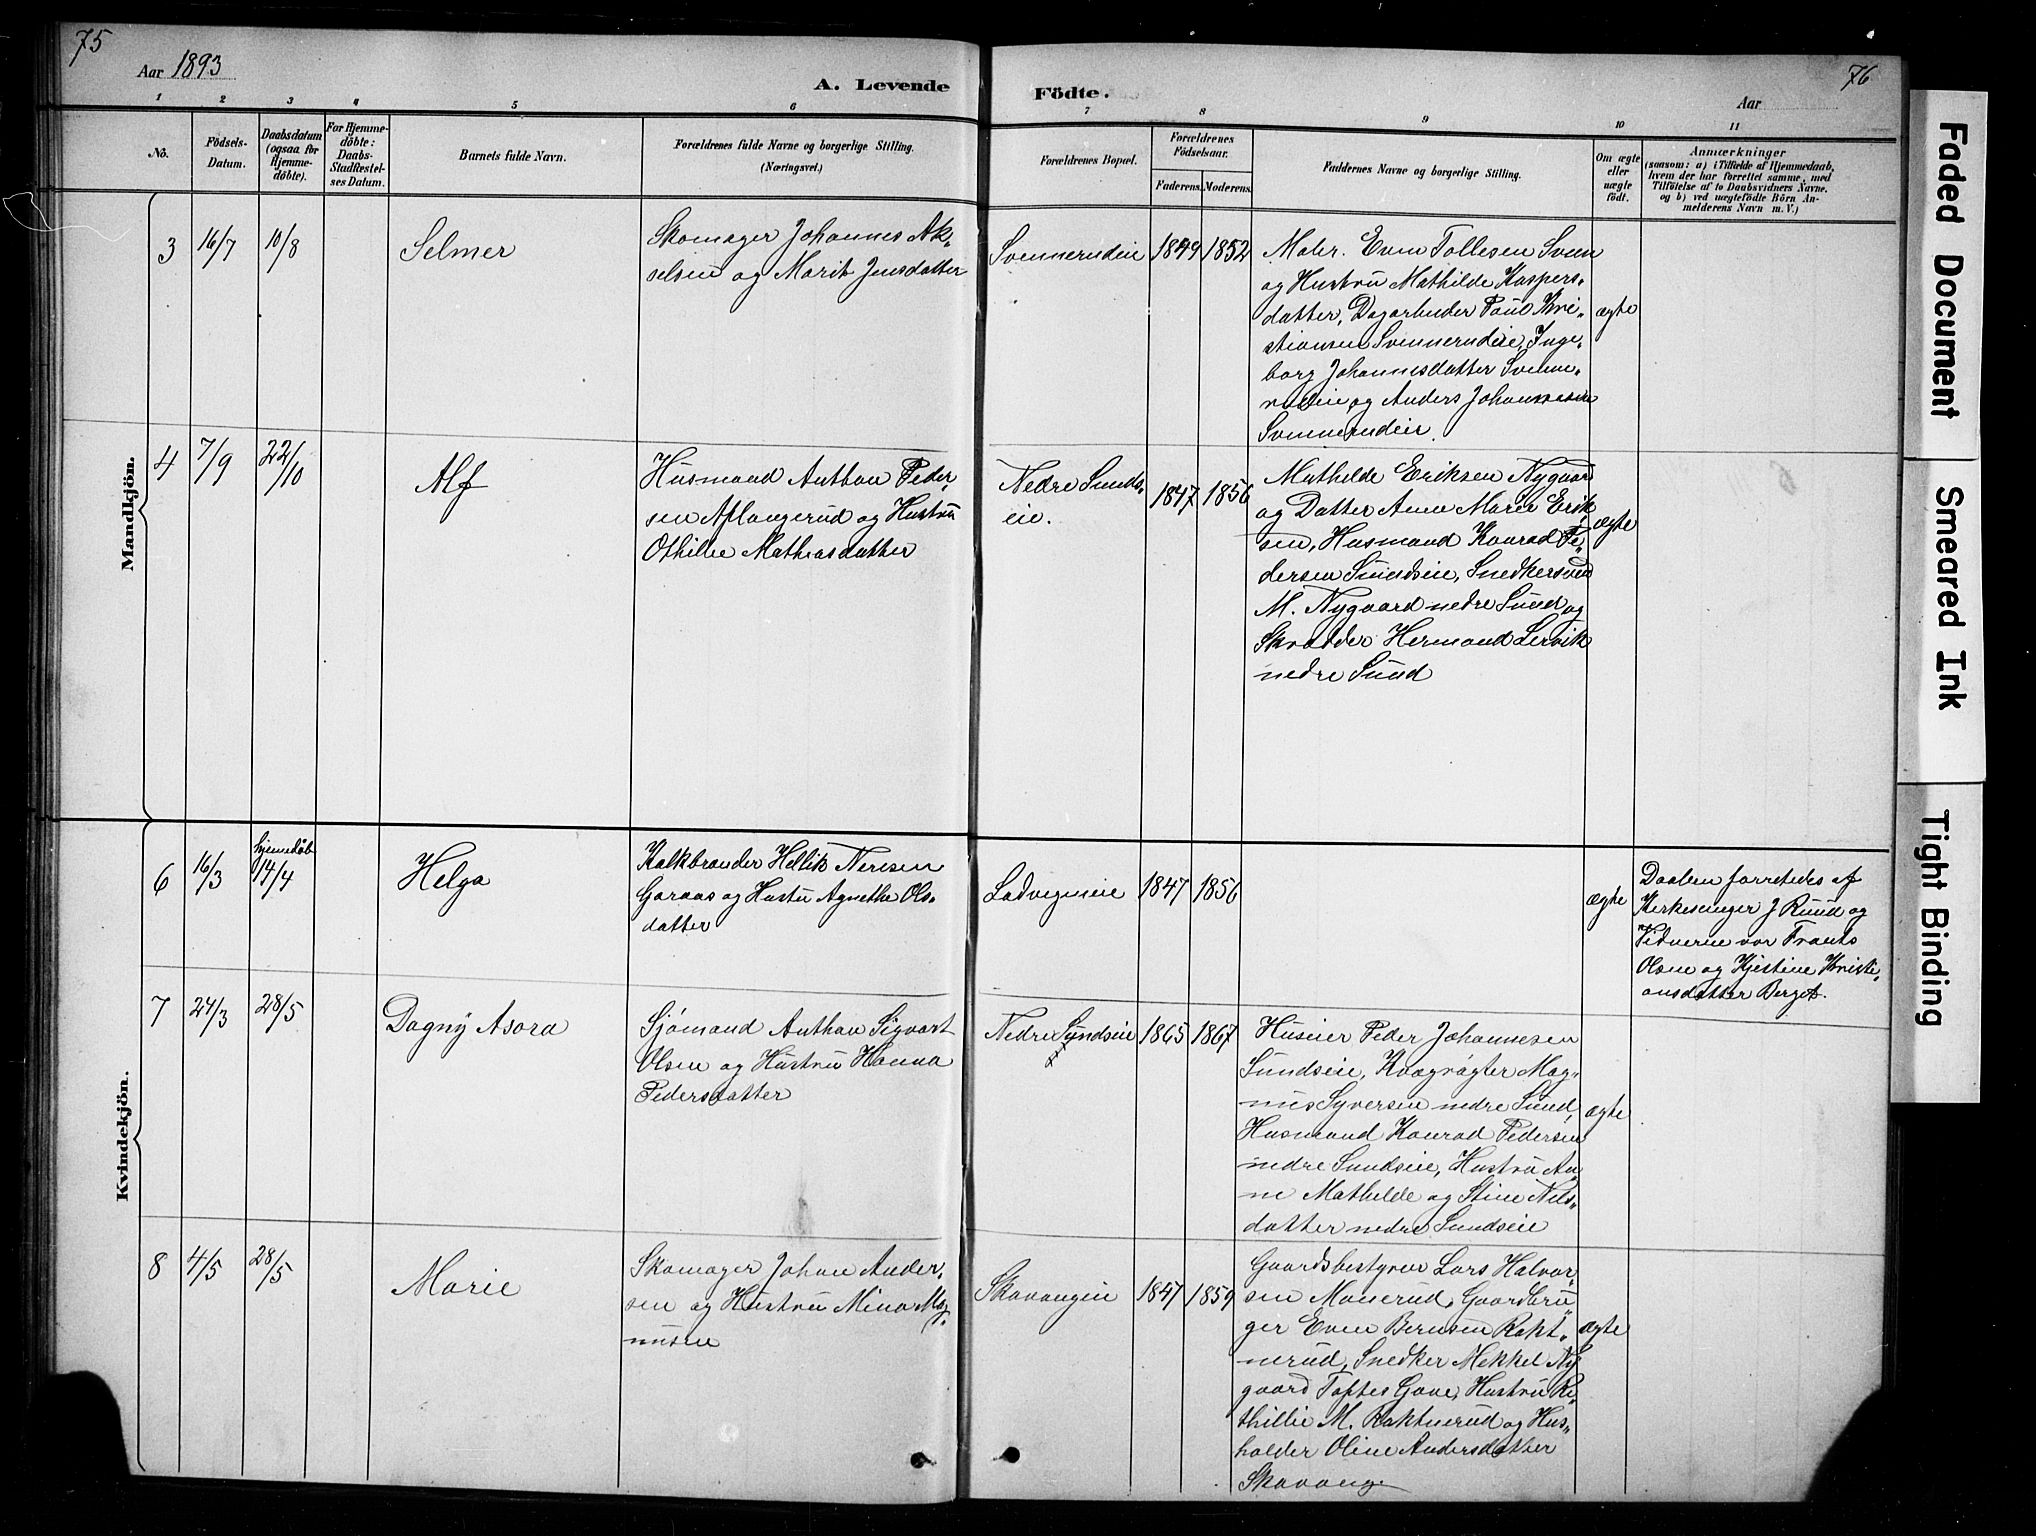 75
Aar 1893
A. Levende
Födte.
76
Aar
1 2 3 4 5 6 7 8 9 10 11
No.
Födsels-
Datum.
Daabsdatum
(ogsaa for
Hjemme-
döbte).
For Hjemme-
döbte:
Daabs-
Stadfæstel-
ses Datum.
Barnets fulde Navn.
Forældrenes fulde Navne og borgerlige Stilling.
(Næringsvei.)
Forældrenes Bopæl.
Forældrenes
Födselsaar.
Faderens. Moderens.
Faddernes Navne og borgerlige Stilling.
Om ægte
eller
uægte
födt.
Anmærkninger
(saasom: a) i Tilfælde af Hjemmedaab,
hvem der har forrettet samme, med
Tilföielse af to Daabsvidners Navne.
og b) ved uægtefödte Börn An-
melderens Navn m. V.)
Mandkjön.
3
16/7
10/8
Selmer
Skomager Johannes Ak-
selsen og Marit Jensdatter
Svennerudeie
1849
1852
Maler. Even Tollesen Sveen
og Hustru Mathilde Kaspers-
datter, Dagarbeider Paul Kri-
stiansen Svennerudeie, Inge-
borg Johannesdatter Svenne-
rudeie og Anders Johannesen
Svennerudeie.
ægte
4
7/9
22/10
Alf
Husmand Anthon Peder-
sen Aplangerud og Hustru
Othilie Mathiasdatter
Nedre Sunds-
eie.
1847
1856
Mathilde Eriksen Nygaard
og Datter Anna Marie Erik-
sen, Husmand Konrad Pe-
dersen Sundseie, Snedkersvend
M. Nygaard nedre Sund og
Skrædder Hermand Lervik
nedre Sund
ægte
Kvindekjön.
6
16/3
hjemmedøb
14/4
Helga
Kalkbrænder Hellik Neresen
Garaas og Hustu Agnethe Ols-
datter
Ladvegneie
1847
1856
ægte
Daaben forretedes af
Kirkesanger J Ruud og
Vidnerne var Frants
Olsen og Kjestine Kristi-
ansdatter Berget.
7
24/3
28/5
Dagny Asora
Sjømand Anthon Sigvart
Olsen og Hustru Hanna
Pedersdatter
Nedre Sundseie
1865
1867
Huseier Peder Johannesen
Sundseie, Kvægrøgter Mag-
nus Syversen nedre Sund,
Husmand Konrad Pedersen
nedre Sundseie, Hustru An-
ne Mathilde og Stine Nils-
datter nedre Sundseie
ægte
8
4/5
28/5
Marie
Skomager Johan Ander-
sen og Hustru Mina Mag-
nusen
Skavangeie
1847
1859
Gaardsbestyrer Lars Halvor-
sen Monerud, Gaardbru-
ger Even Bernsen Rakt-
nerud, Snedker Mekkel Ny-
gaard Toftes Gave, Hustru
thillie M. Raktnerud og Hus-
holder Oline Andersdatter
Skavang
ægte
Faded Document
Smeared Ink
Tight Binding